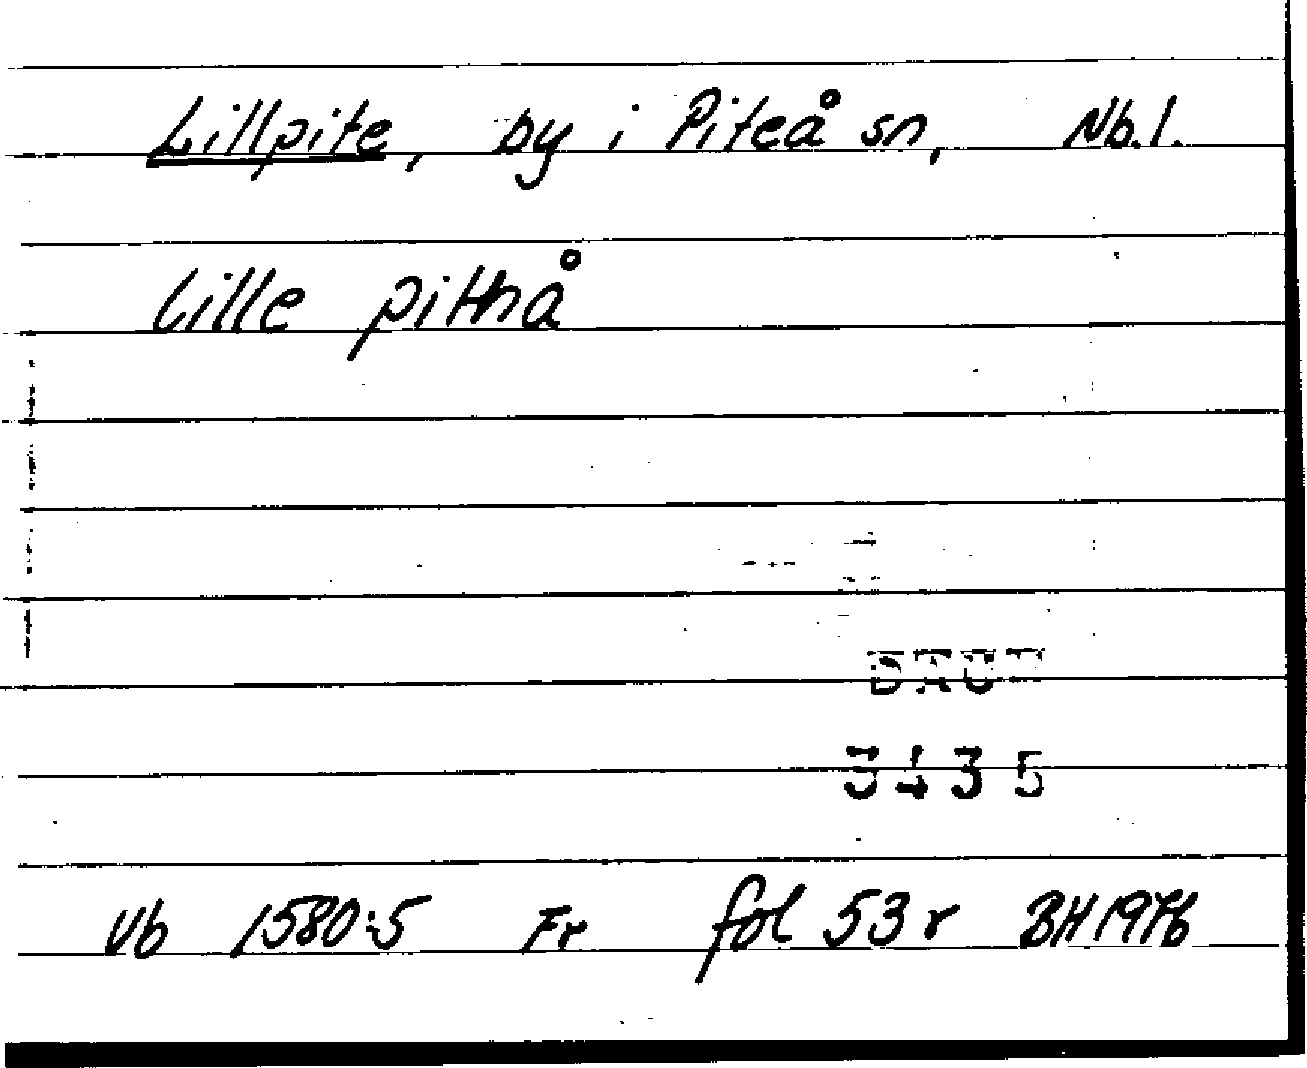 Lillpite, by i Piteå sn, Nb.l.
Lille pithå
3435
Vb 1580:5 Fr fol 53 r BH 1976